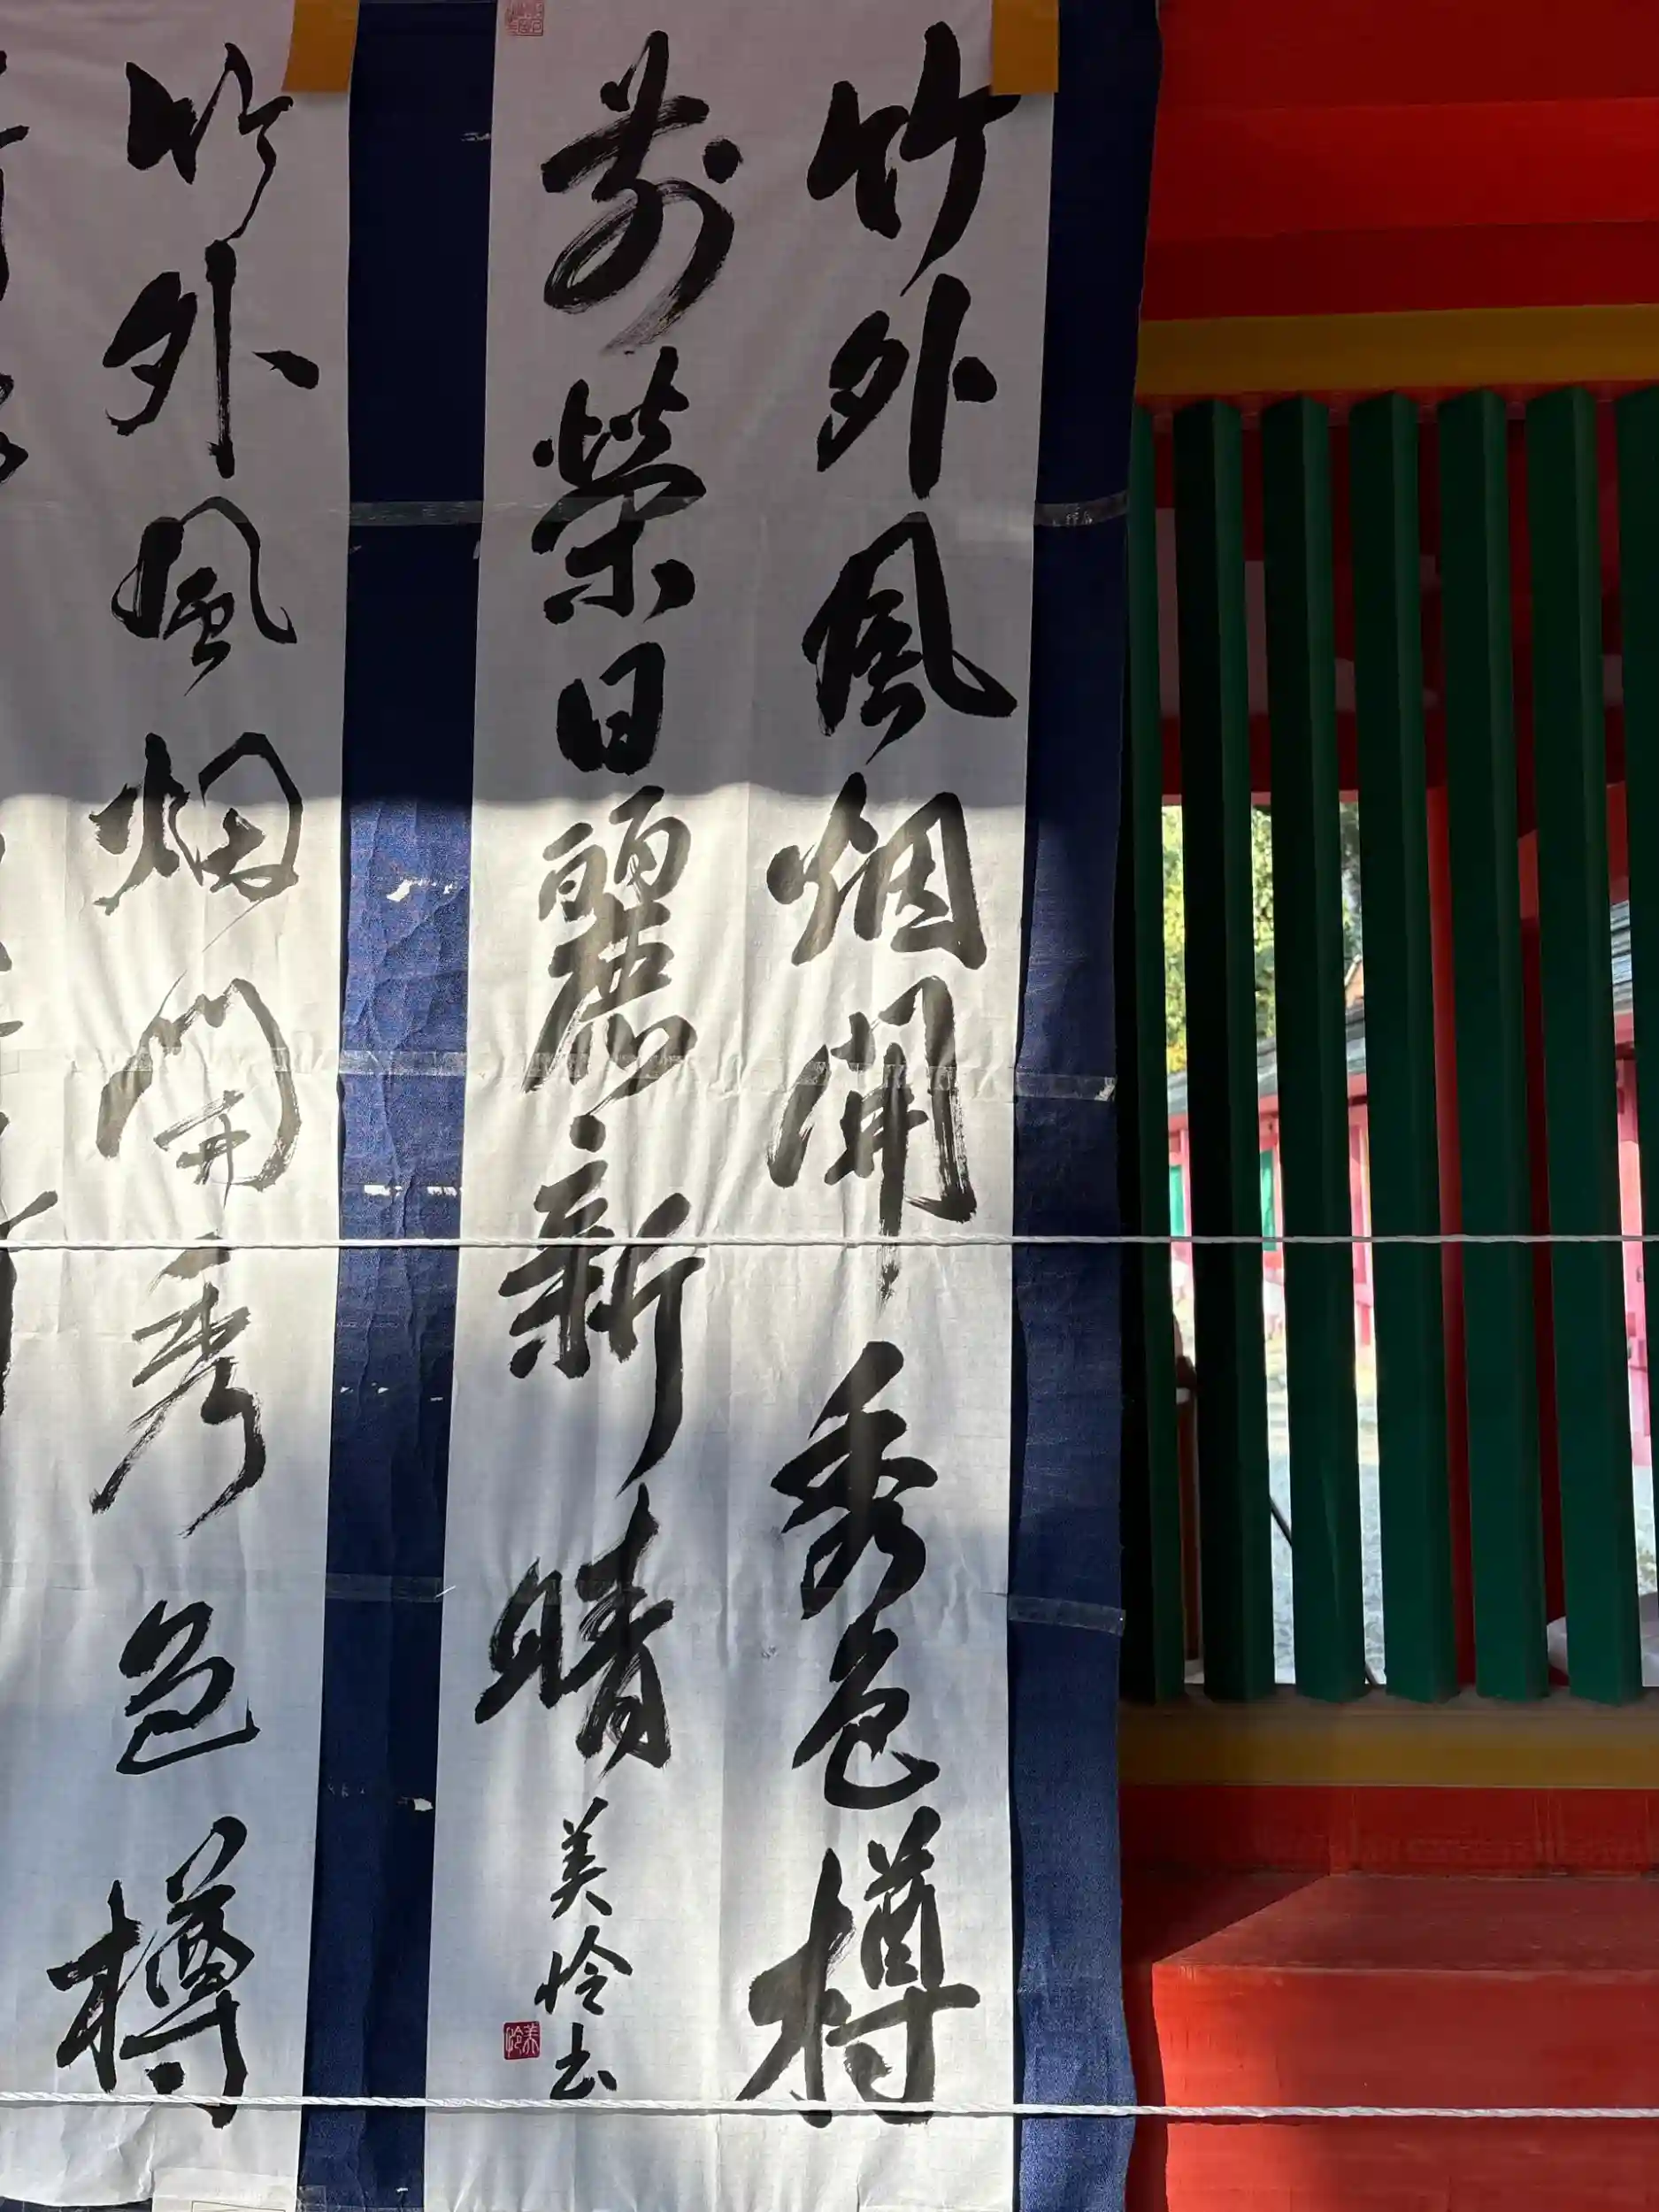 竹外風烟開秀色樽
前榮日麗新晴
美怜书
美怜
竹外風烟開秀色樽